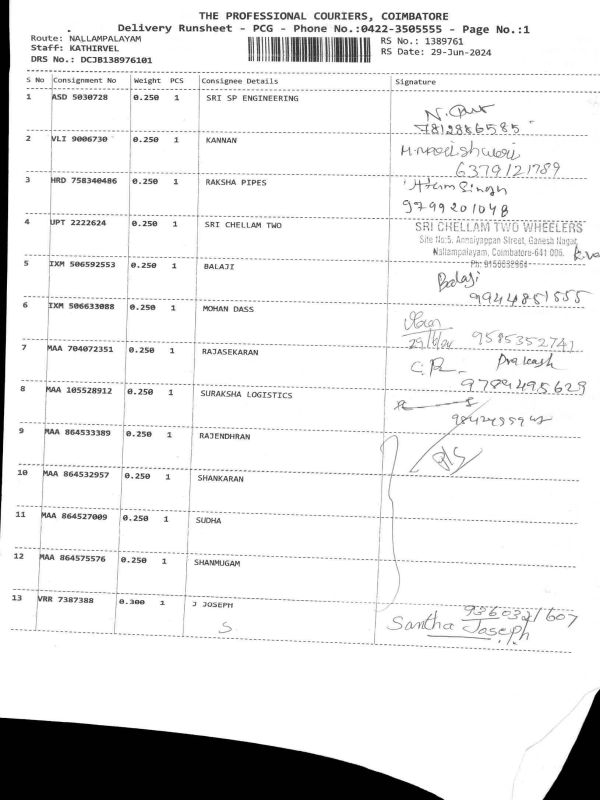 THE PROFESSIONAL COURIERS, COIMBATORE
Delivery Runsheet - PCG - Phone No.:0422-3505555 - Page No.:1
Route: NALLAMPALAYAM
Staff: KATHIRVEL
DRS No.: DCJB138976101
RS No.: 1389761
RS Date: 29-Jun-2024
S No Consignment No Weight PCS Consignee Details Signature
1 ASD 5030728 0.250 1 SRI SP ENGINEERING
7812886585
2 VLI 9006730 0.250 1 KANNAN
6379121789
3 HRD 758340486 0.250 1 RAKSHA PIPES
9799201048
4 UPT 2222624 0.250 1 SRI CHELLAM TWO
SRI CHELLAM TWO WHEELERS
Site No:5, Annaiyappan Street, Ganesh Nagar,
Nallampalayam, Coimbatore-641 006.
5 IXM 506592553 0.250 1 BALAJI
Balaji
9944851555
6 IXM 506633088 0.250 1 MOHAN DASS
29/6/24 9585352741
7 MAA 704072351 0.250 1 RAJASEKARAN
C.R. Prakash
9789495629
8 MAA 105528912 0.250 1 SURAKSHA LOGISTICS
9 MAA 864533389 0.250 1 RAJENDHRAN
10 MAA 864532957 0.250 1 SHANKARAN
11 MAA 864527009 0.250 1 SUDHA
12 MAA 864575576 0.250 1 SHANMUGAM
13 VRR 7387388 0.300 1 J JOSEPH
9360321607
Santha Joseph
S